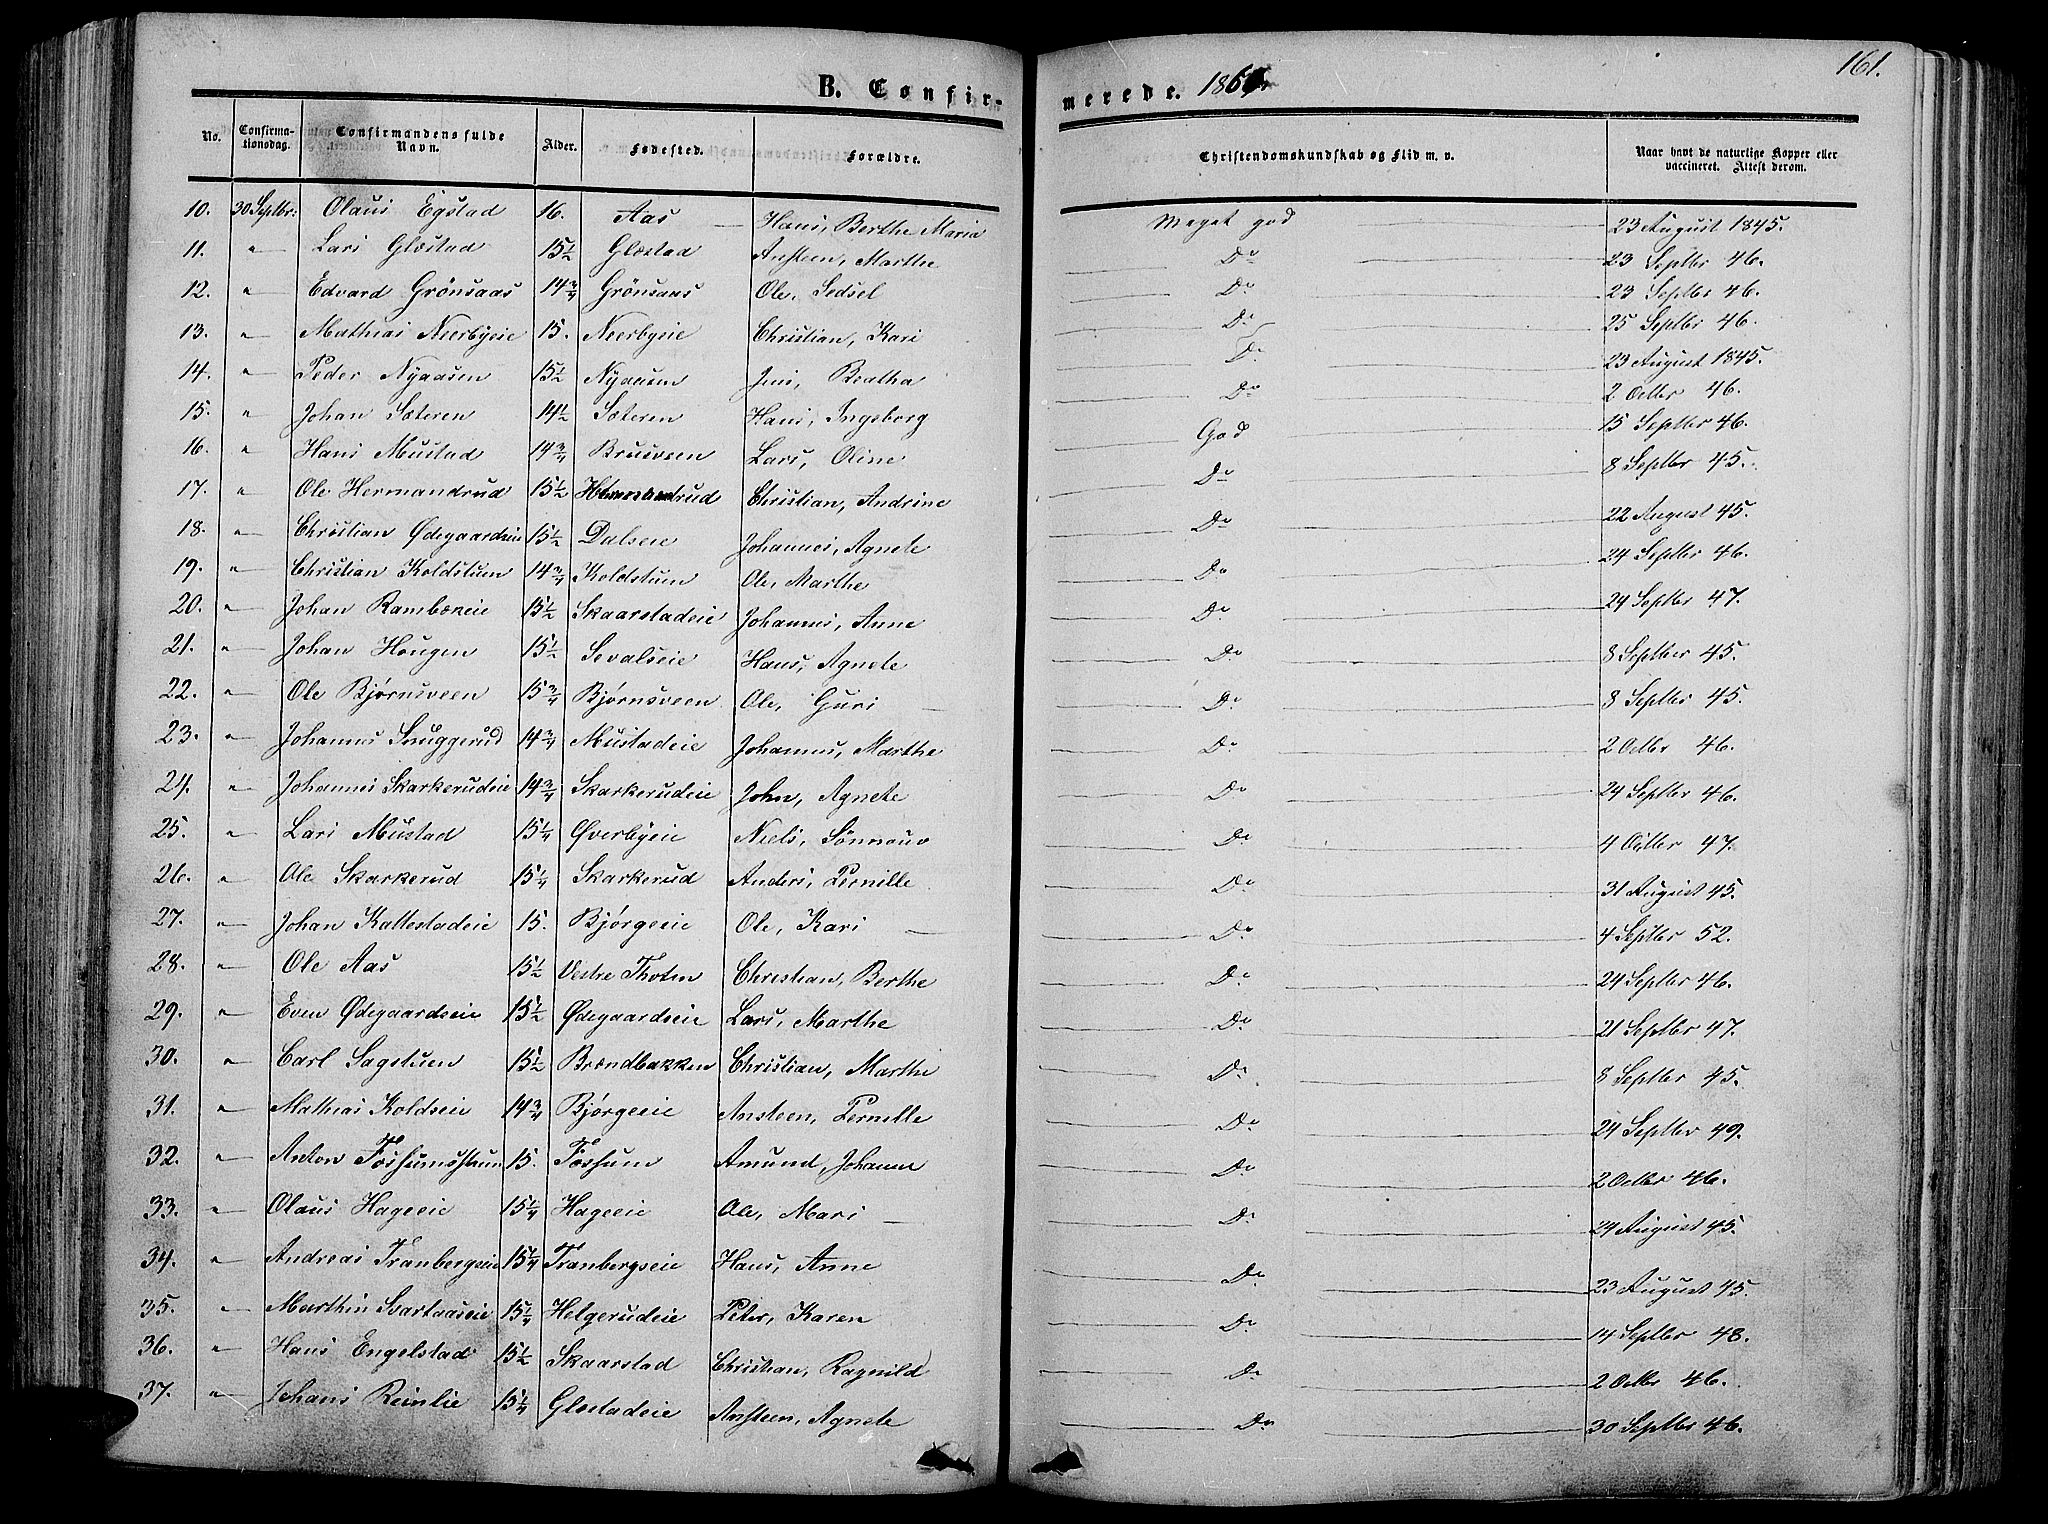 161.
B. Confirmerede. 186
No. Confirmationsdag. Confirmandens fulde Navn. Alder. Fødested. Forældre. Christendomskundskab og Flid m. v. Naar havt de naturlige Kopper eller vaccineret. Attest derom.
10. 30 Septbr: Olaus Egstad 16. Aas — Hans, Berthe Maria Meget god 23 August 1845.
11. " Lars Glæstad 15½ Glæstad Ansteen, Marthe Do 23 Septbr 46.
12. " Edvard Grönsaas 14¾ Grönsaas Ole, Sedsel Do 23 Septbr 46.
13. " Mathias Neerbyeie 15. Neerbyeie Christian, Kari Do 25 Septbr 46.
14. " Peder Nyaasen 15½ Nyaasen Jens, Beatha Do 23 August 1845.
15. " Johan Sæteren 14½ Sæteren Hans, Ingeborg Do 2 Octbr 46.
16. " Hans Mustad 14¾ Brusveen Lars, Oline God 15 Septbr 46.
17. " Ole Hermandrud 15½ Hermandrud Christian, Andrine Do 8 Septbr 45.
18. " Christian Ødegaardseie 15½ Dalseie Johannes, Agnete Do 22 August 45.
19. " Christian Koldstum 14¾ Koldstum Ole, Marthe Do 24 Septbr 46.
20. " Johan Rambækeie 15½ Skaarstadeie Johannes, Anne Do 24 Septbr 47.
21. " Johan Hougen 15½ Sevalseie Hans, Agnete Do 8 Septber 45.
22. " Ole Bjørnsveen 15¾ Bjørnsveen Ole, Guri — Do 8 Septbr 45.
23. " Johannes Snuggerud 14¾ Mustadeie Johannes, Marthe Do 2 Octbr 46.
24. " Johannes Skarkerudeie 14¾ Skarkerudeie John, Agnete Do 24 Septbr 46.
25. " Lars Mustad 15¼ Øverbyeie Niels, Sönnouv Do 4 Octbr 47.
26. " Ole Skarkerud 15¼ Skarkerud Anders, Pernille Do 31 August 45.
27. " Johan Kattestadeie 15. Bjørgeeie Ole, Kari — Do 4 Septbr 52.
28. " Ole Aas 15½ Vestre Thoten Christian, Berthe Do 24 Septbr 46.
29. " Even Ødegaardseie 15½ Ødegaardseie Lars, Marthe Do 21 Septbr 47.
30. " Carl Sagstuen 15½ Brændbakken Christian, Marthe Do 8 Septbr 45.
31. " Mathias Koldseie 14¾ Bjørgeeie Ansteen, Pernille Do 24 Septbr 49.
32. " Anton Fossumsstuen 15. Fossum Amund, Johanne Do 2 Octbr 46.
33. " Olaus Hageeie 15¼ Hageeie Ole, Mari — Do 24 August 45.
34. " Andreas Tranbergseie 15¼ Tranbergseie Hans, Anne Do 23 August 45.
35. " Marthin Svartaaseie 15¼ Helgerudeie Peter, Karen Do 14 Septbr 48.
36. " Hans Engelstad 15½ Skaarstad Christian, Ragnild Do 2 Octbr 46.
37. " Johans Reinlie 15¼ Glæstadeie Ansteen, Agnete Do 30 Septbr 46.